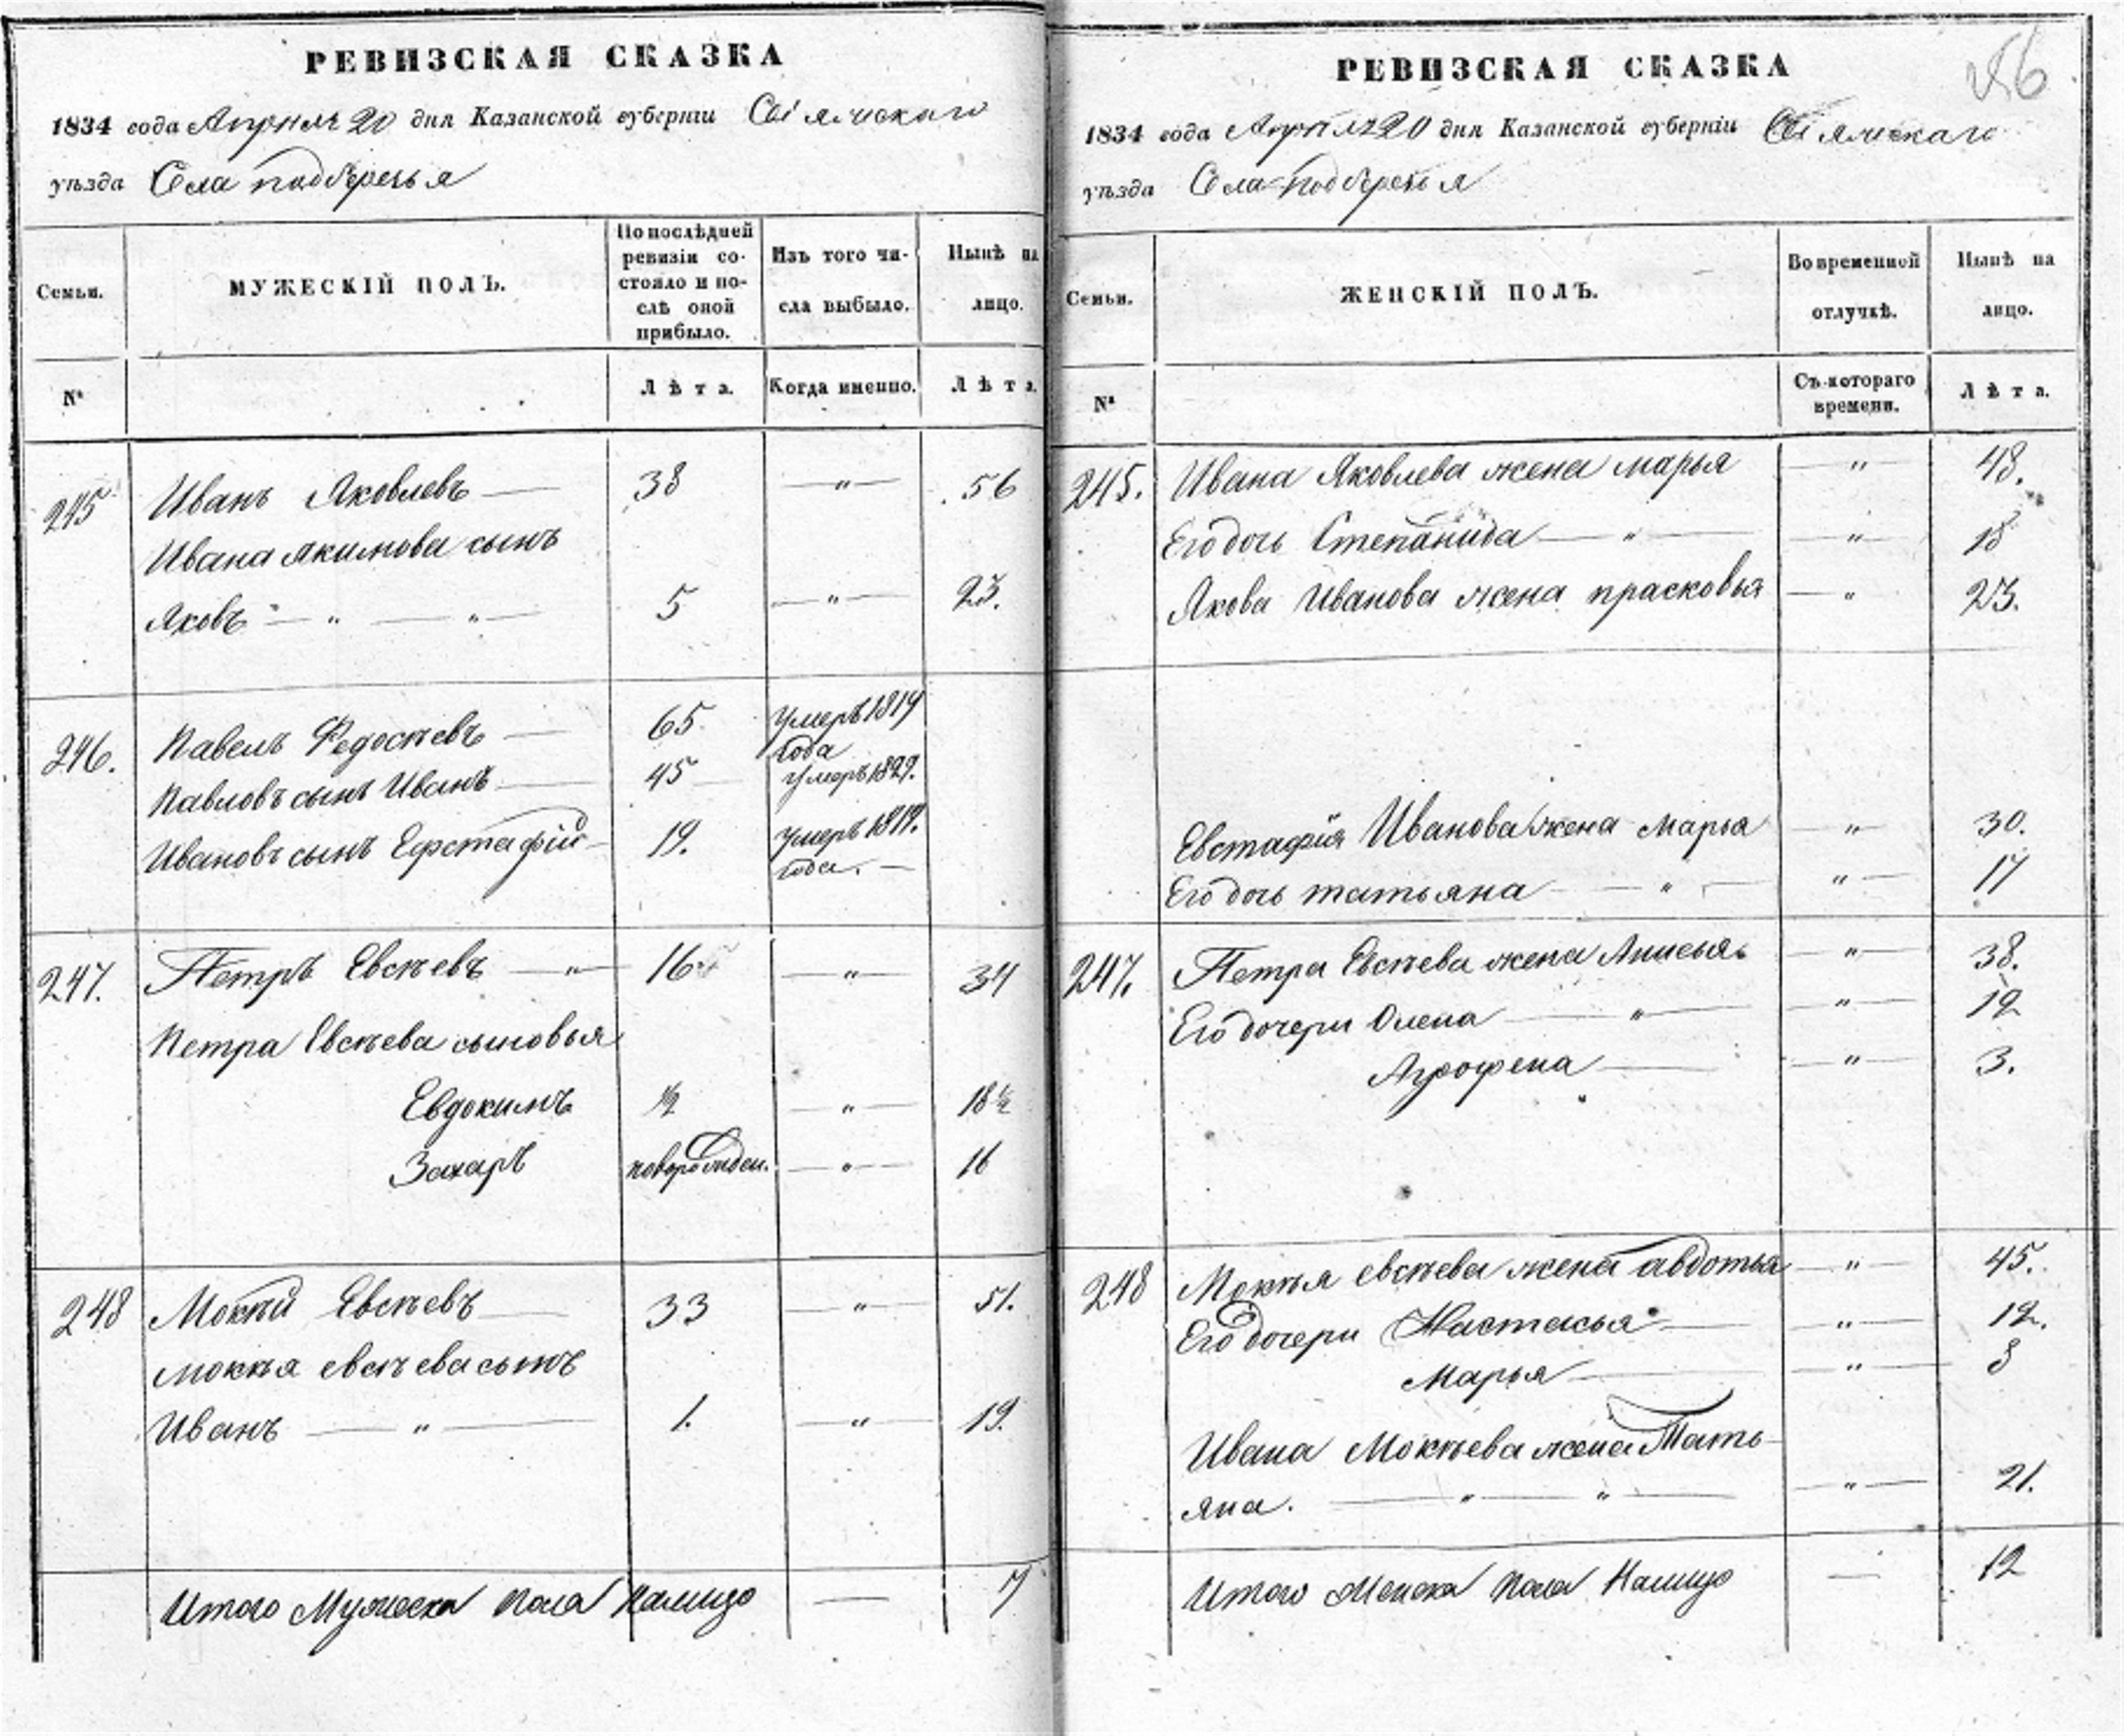 РЕВИЗСКАЯ СКАЗКА
1834 года Апреля 20 дня Казанской губерніи Свіяжскаго
уѣзда Села подберезья
Семьи.
МУЖЕСКІЙ ПОЛЪ.
По послѣдней
ревизіи со-
стояло и по-
слѣ оной
прибыло.
Изъ того чи-
сла выбыло.
Нынѣ на
лицо.
№
Лѣта.
Когда именно.
Лѣта.
245 Иванъ Яковлевъ — 38 — " — 56
Ивана Якимова сынъ
Яковъ — " — " — 5 — " — 23.
246. Павелъ Федосѣевъ — 65 умеръ 1819
года
Павловъ сынъ Иванъ — 45 умеръ 1829.
Ивановъ сынъ Ефстафій — 19. умеръ 1819.
года. —
247. Петръ Евсѣевъ — " — 16 — " — 34
Петра Евсѣева сыновья
Евдокимъ ½ — " — 18½
Захаръ новорожден. — " — 16
248 Мокѣй Евсѣевъ — 33 — " — 51.
Мокѣя евсѣева сынъ
Иванъ — " — 1. — " — 19.
Итого Мужеска пола Налицо — 7
РЕВИЗСКАЯ СКАЗКА
1834 года Апреля 20 дня Казанской губерніи Свіяжскаго
уѣзда Села подберезья
Семьи.
ЖЕНСКІЙ ПОЛЪ.
Во временной
отлучкѣ.
Нынѣ на
лицо.
№
Съ котораго
времени.
Лѣта.
245. Ивана Яковлева жена марья — " — 48.
Его дочь Степанида — " — " — 18
Якова Иванова жена прасковья — " 23.
Евстафія Иванова жена марья — " — 30.
Его дочь татьяна — " — " — 17
247. Петра Евсѣева жена — " — 38.
Его дочери Олена — " — " — 12
Агрофена — " — 3.
248 Мокѣя евсѣева жена авдотья — " — 45.
Его дочери Настасья — " — 12.
Марья — " — 8
Ивана Мокѣева жена Тать-
яна. — " — " — " — 21.
Итого Женска пола Налицо — 12